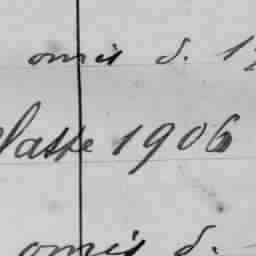 omis d. 1
lasse 1906
omis d.